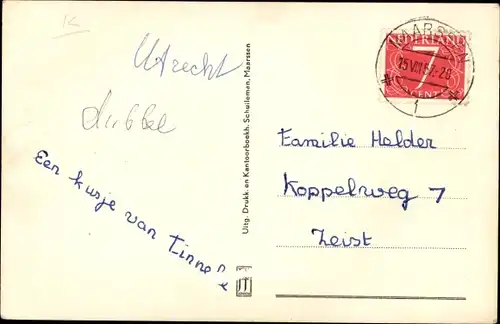 K
Utrecht
dubbel
Een kusje van Tinneke
Uitg. Drukk. en Kantoorboekh. Schuileman, Maarssen
NEDERLAND
7
CENT
MAARSSEN
15 VIII 57 · 20
Familie Helder
Koppelweg 7
Zeist